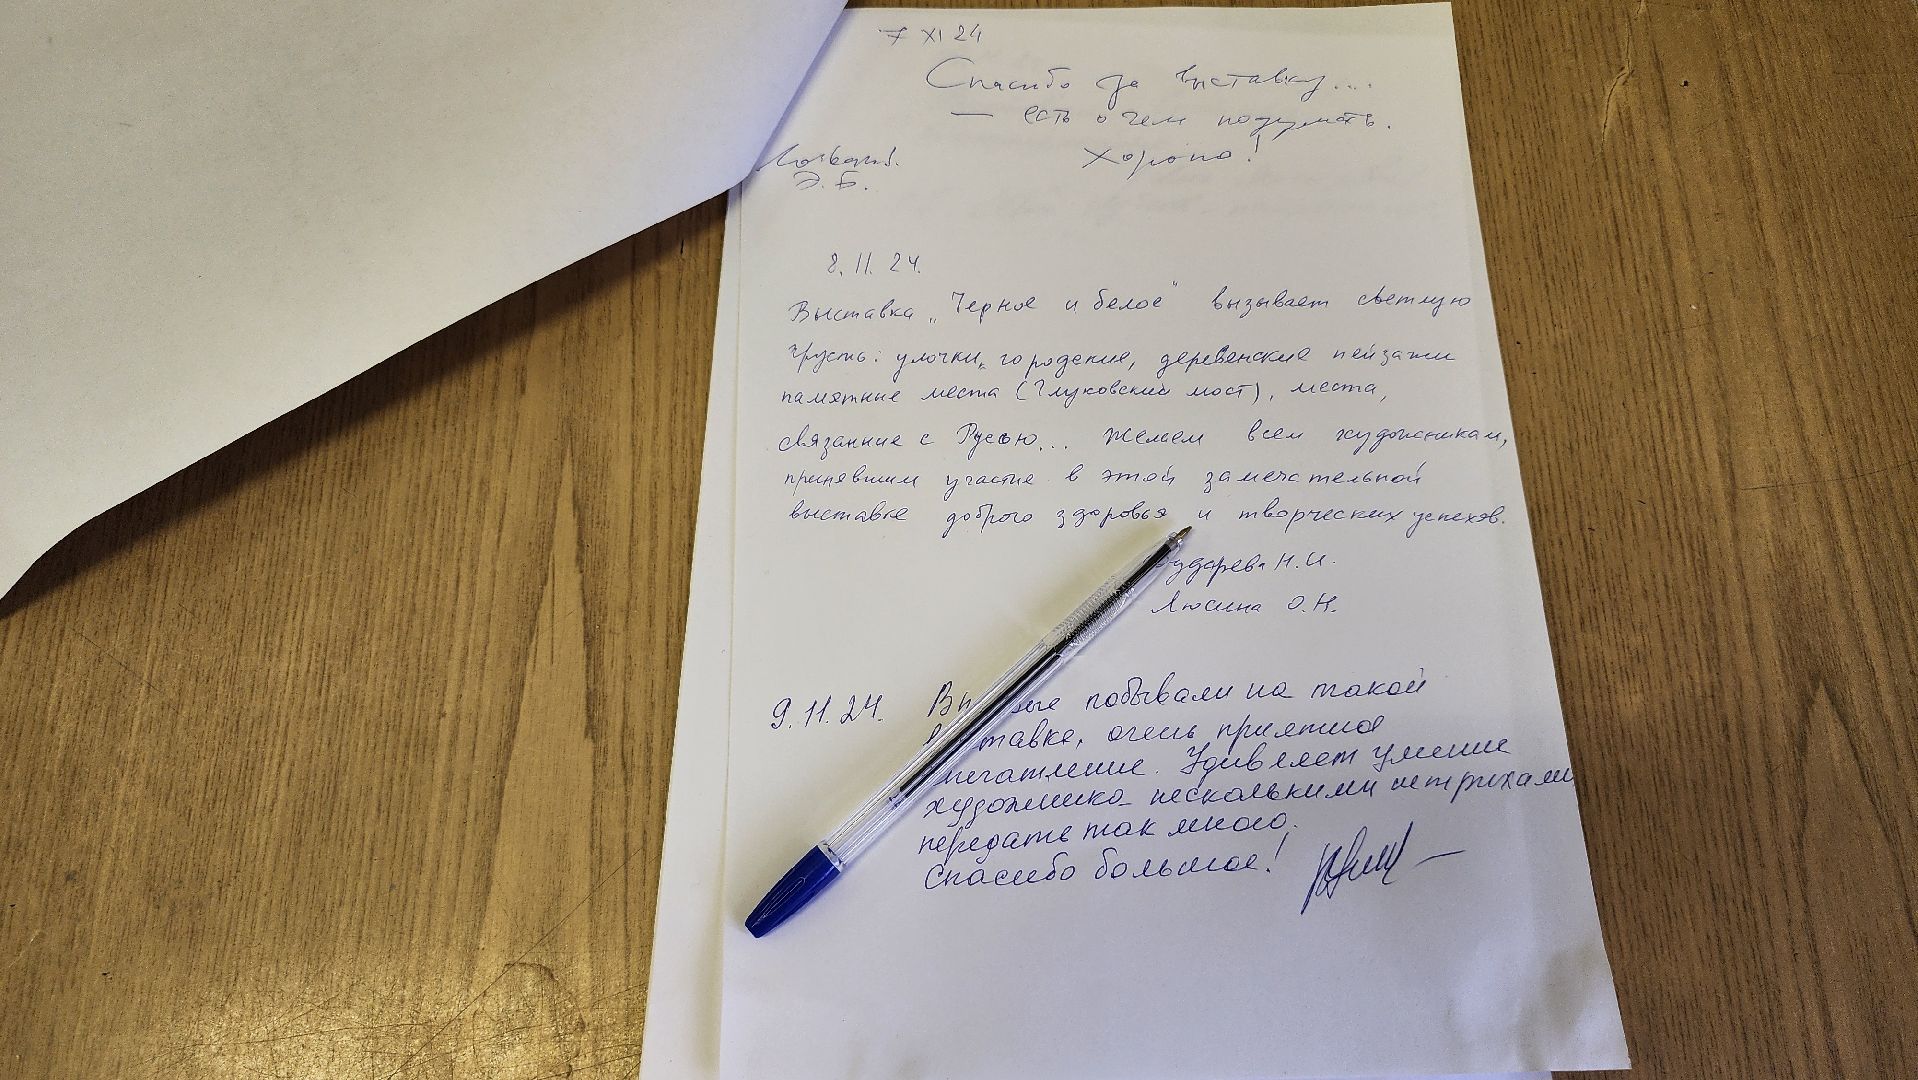 7 XI 24
Спасибо за выставку...
— есть о чем подумать.
Хорошо!
Э.Б.
8.11.24.
Выставка „Черное и белое" вызывает светлую
грусть: улочки, городские, деревенские пейзажи
памятные места (Глуковский мост), места,
связанные с Русью... Желаем всем художникам,
принявшим участие в этой замечательной
выставке доброго здоровья и творческих успехов.
Н.И.
Люсина О.Н.
9.11.24. побывали на такой
очень приятное
Удивляет умение
художника несколькими штрихами
передать так много.
Спасибо большое!